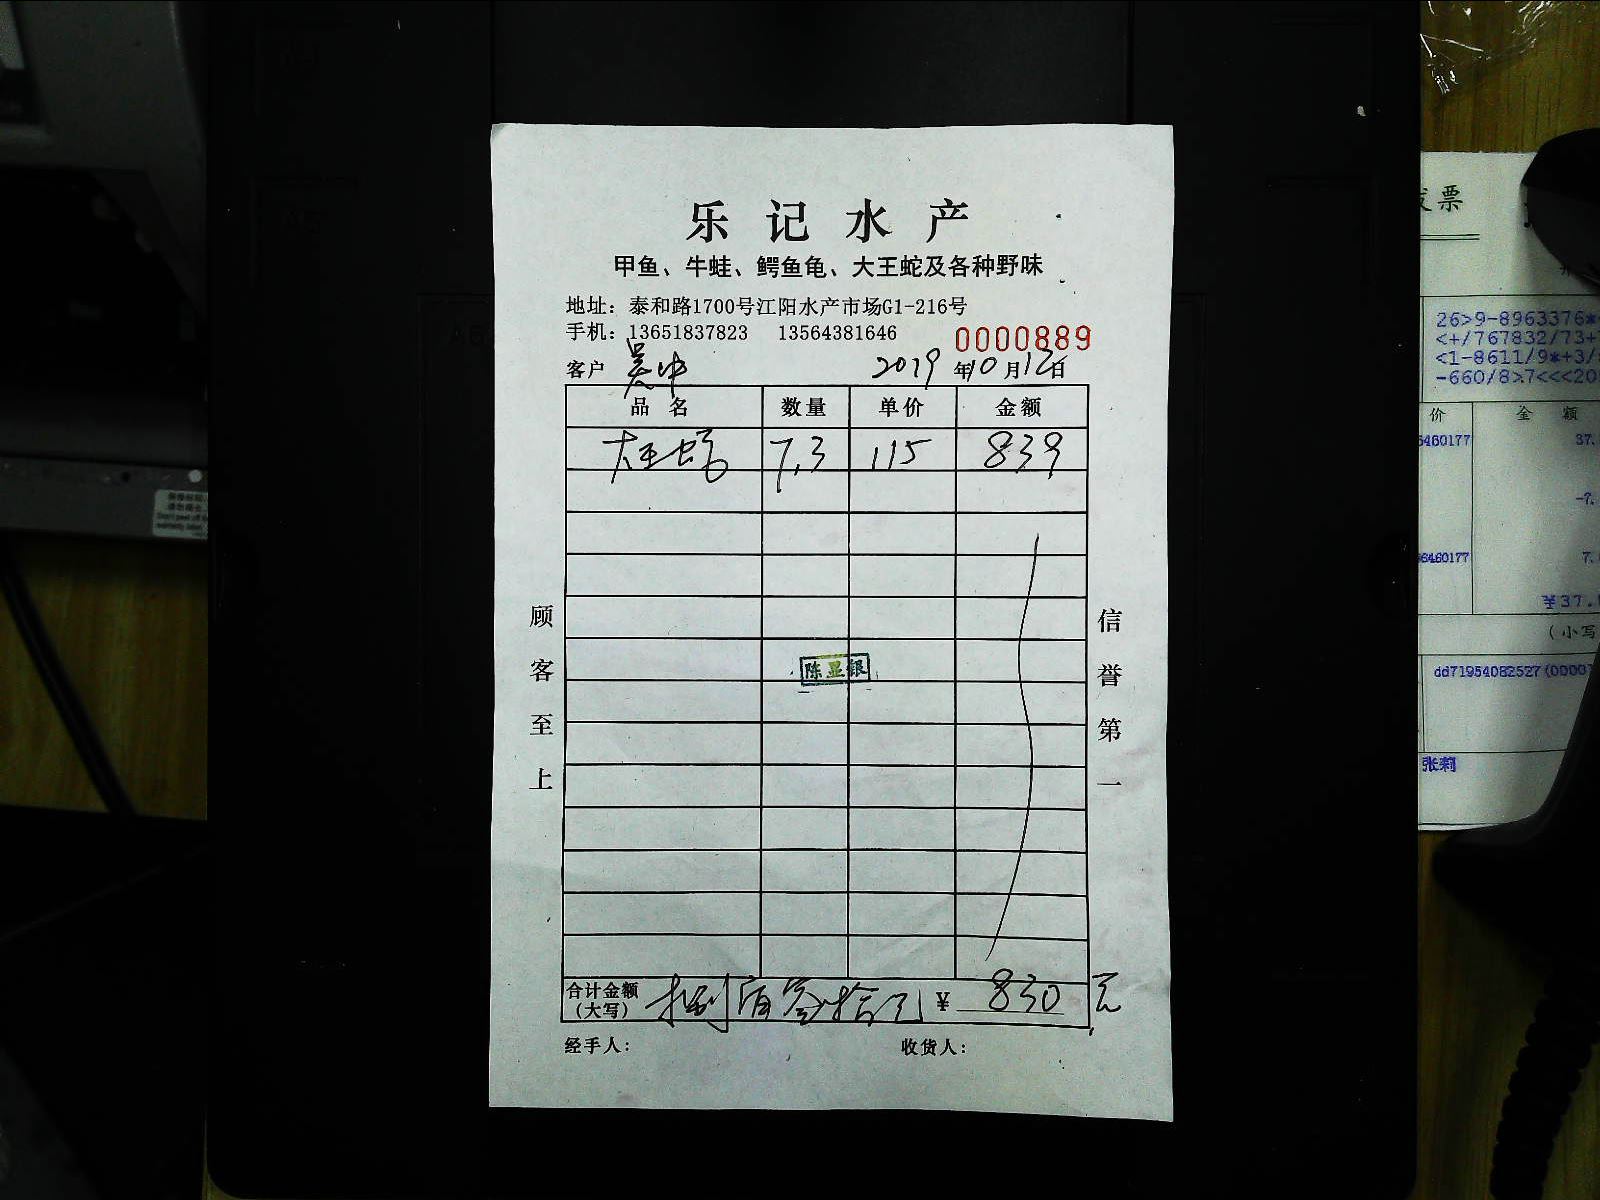 乐记水产
甲鱼、牛蛙、鳄鱼龟、大王蛇及各种野味
地址：泰和路1700号江阳水产市场G1-216号
手机：13651837823 13564381646
0000889
客户 吴中 2019年10月12日
品名 数量 单价 金额
大王蛇 7.3 115 839
陈显银
顾客至上
信誉第一
合计金额（大写） 捌百叁拾元 ￥830元
经手人： 收货人：
发票
26>9-8963376*
<+/767832/73+
<1-8611/9*+3/
-660/8>7<<<20
价 金 额
6460177 37.
-7.
66460177 7.
￥37.
（小写
dd71954082527(0000
张莉